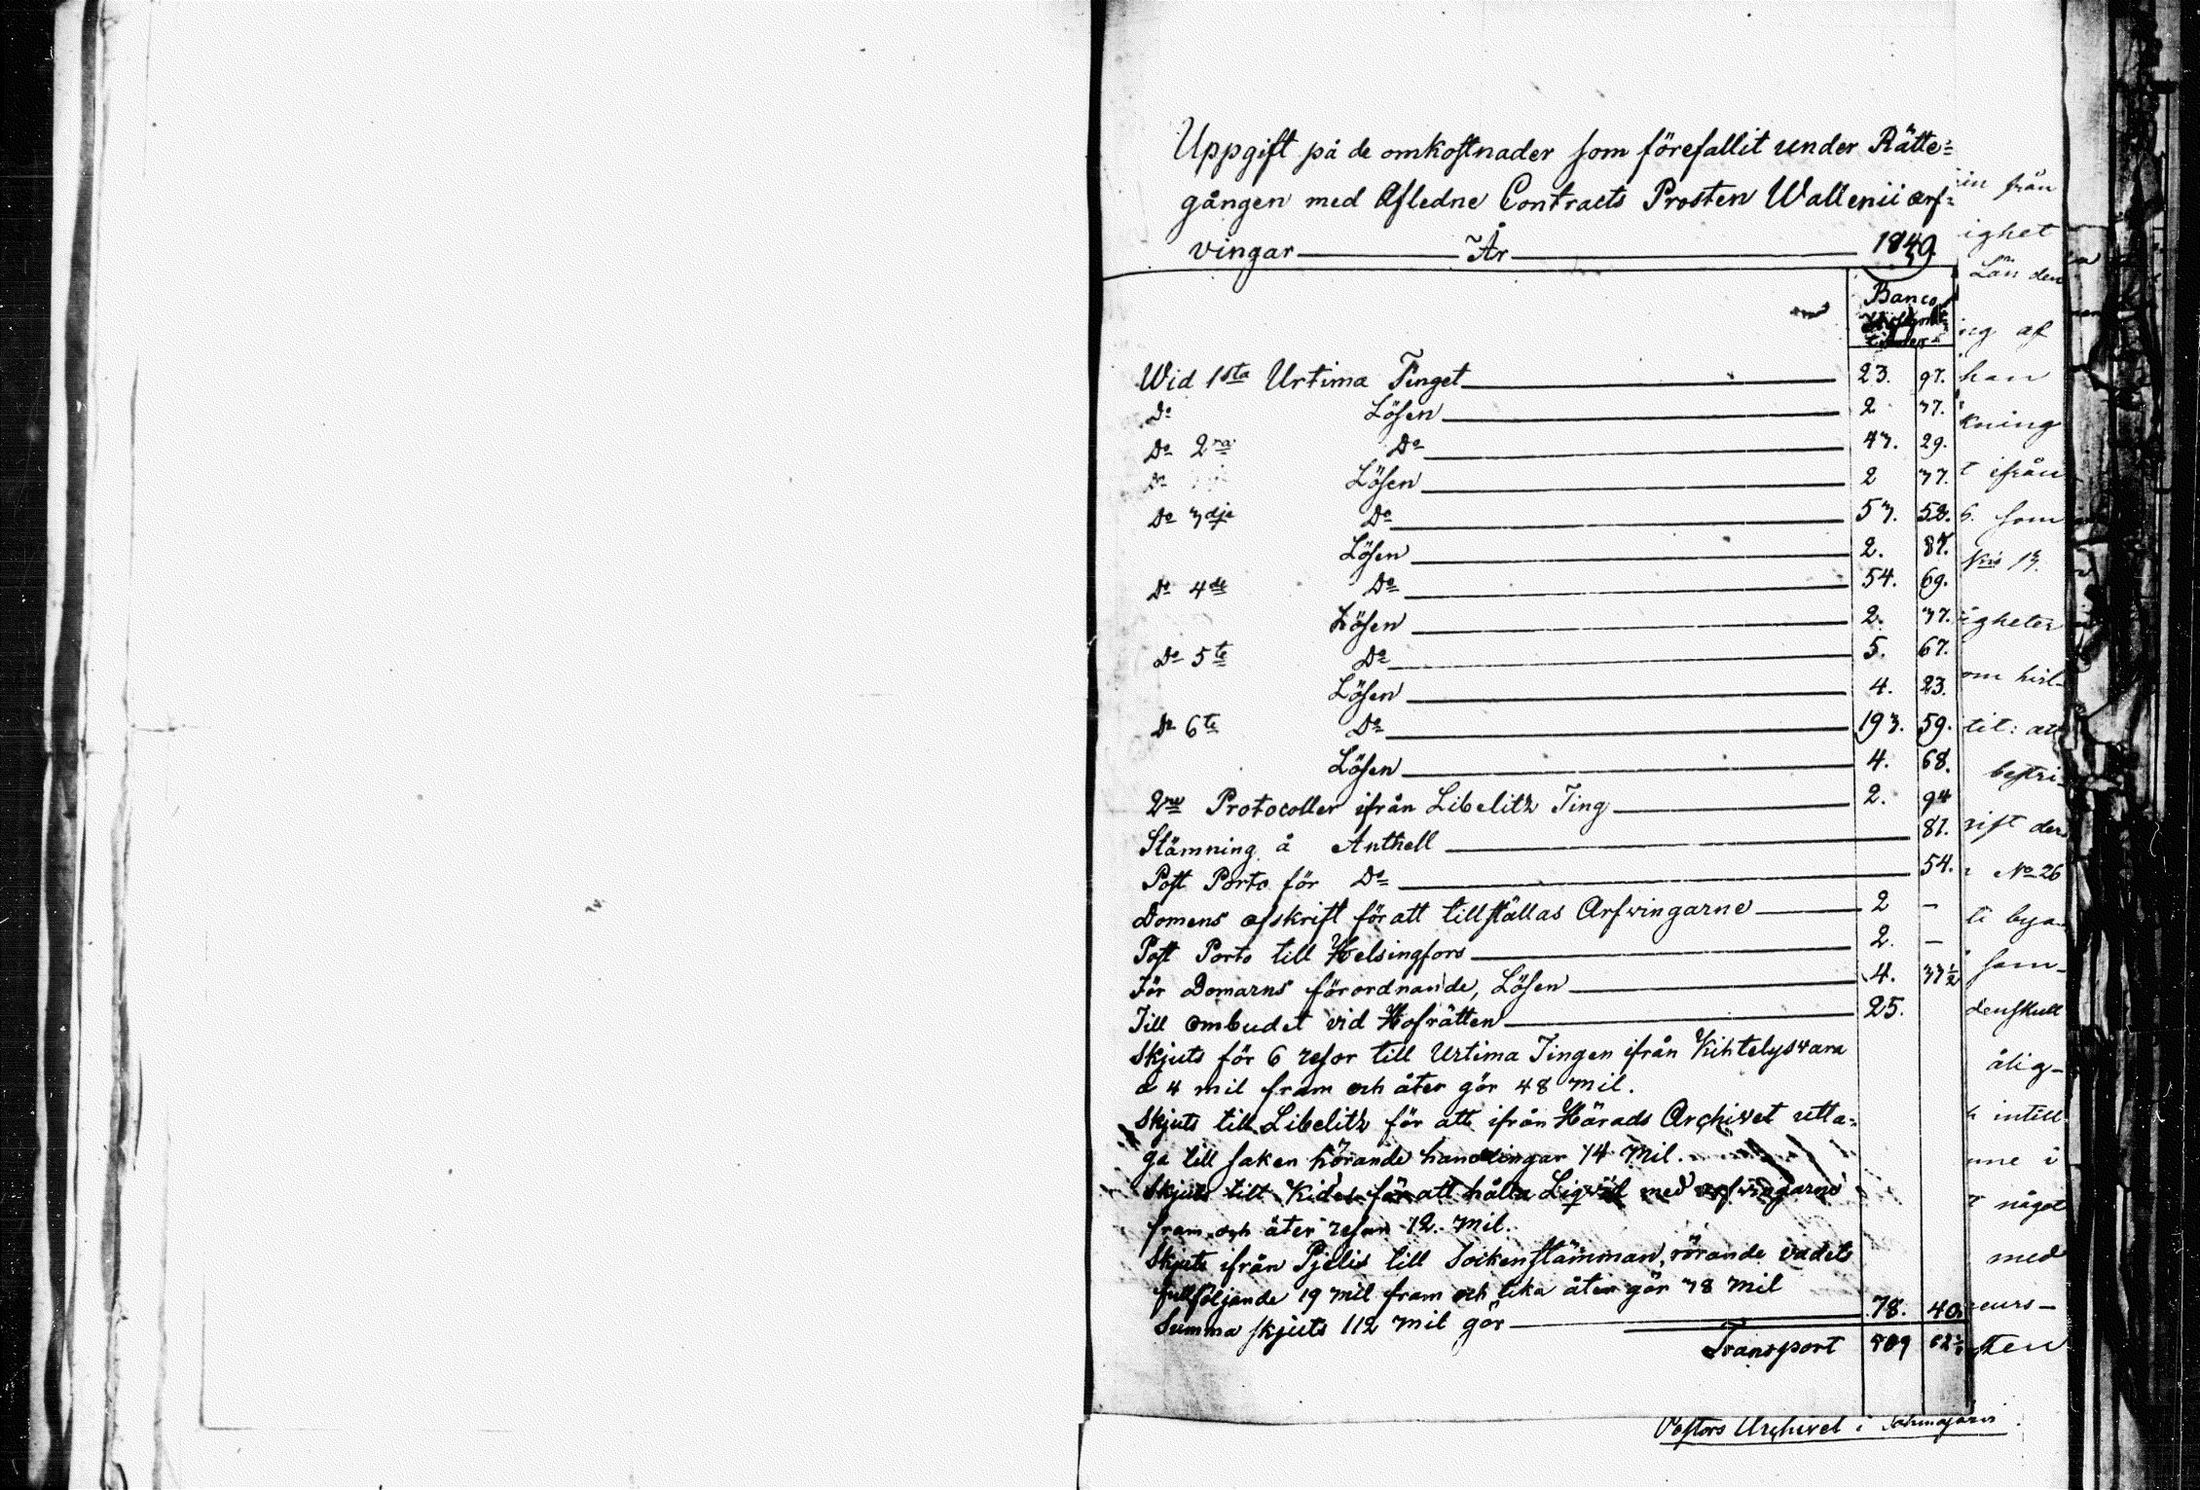 Uppgift på de omkostnader som förefallit under Rätte=
gången med Afledne Contracts Prosten Wallenii arf=
vingar År 1840
Banco
Wid 1sta Urtima Tinget 23. 97.
Do Lösen 2 37.
Do 2ra Do 43. 29.
Do Lösen 2 37.
Do 3dje Do 53. 58.
Lösen 2. 87.
Do 4de Do 54. 69.
Lösen 2. 37.
Do 5te Do 5. 67.
Lösen 4. 23.
Do 6te Do 193. 59.
Lösen 4. 68.
2ne Protocoller ifrån Libelitz Ting 2. 94
Stämning å Anthell 81.
Post Porto för Do 54.
Domens afskrift för att tillställas Arfwingarne 2 –
Post Porto till Helsingfors 2. –
För Domarns förordnande, Lösen 4. 33½
Till ombudet vid Hofrätten 25.
Skjuts för 6 resor till Urtima Tingen ifrån Kihtelysvara
a 4 mil fram och åter gör 48 mil.
Skjuts till Libelitz för att ifrån Härads Archivet utta=
ga till saken hörande handlingar 14 Mil.
Skjuts till Kides för att hålla Liqvid med arfvingarne
fram och åter resan 12. Mil.
Skjuts ifrån Pjelis till Sockenstämman, rörande vadets
fullföljande 19 mil fram och lika åter gör 38 Mil
Summa skjuts 112 Mil gör 78. 40.
Transport 509 62½
in från
ighet
Län den
ing af
han
kning
t ifrån
6. som
No 13.
igheter
om hvil-
tit: att
bestri-
rift der
No 26
ti bya-
som-
denskull
ålig-
h intill
nne i
t något
med
eurs-
sten
Pastors Archivet i Tohmajärvi